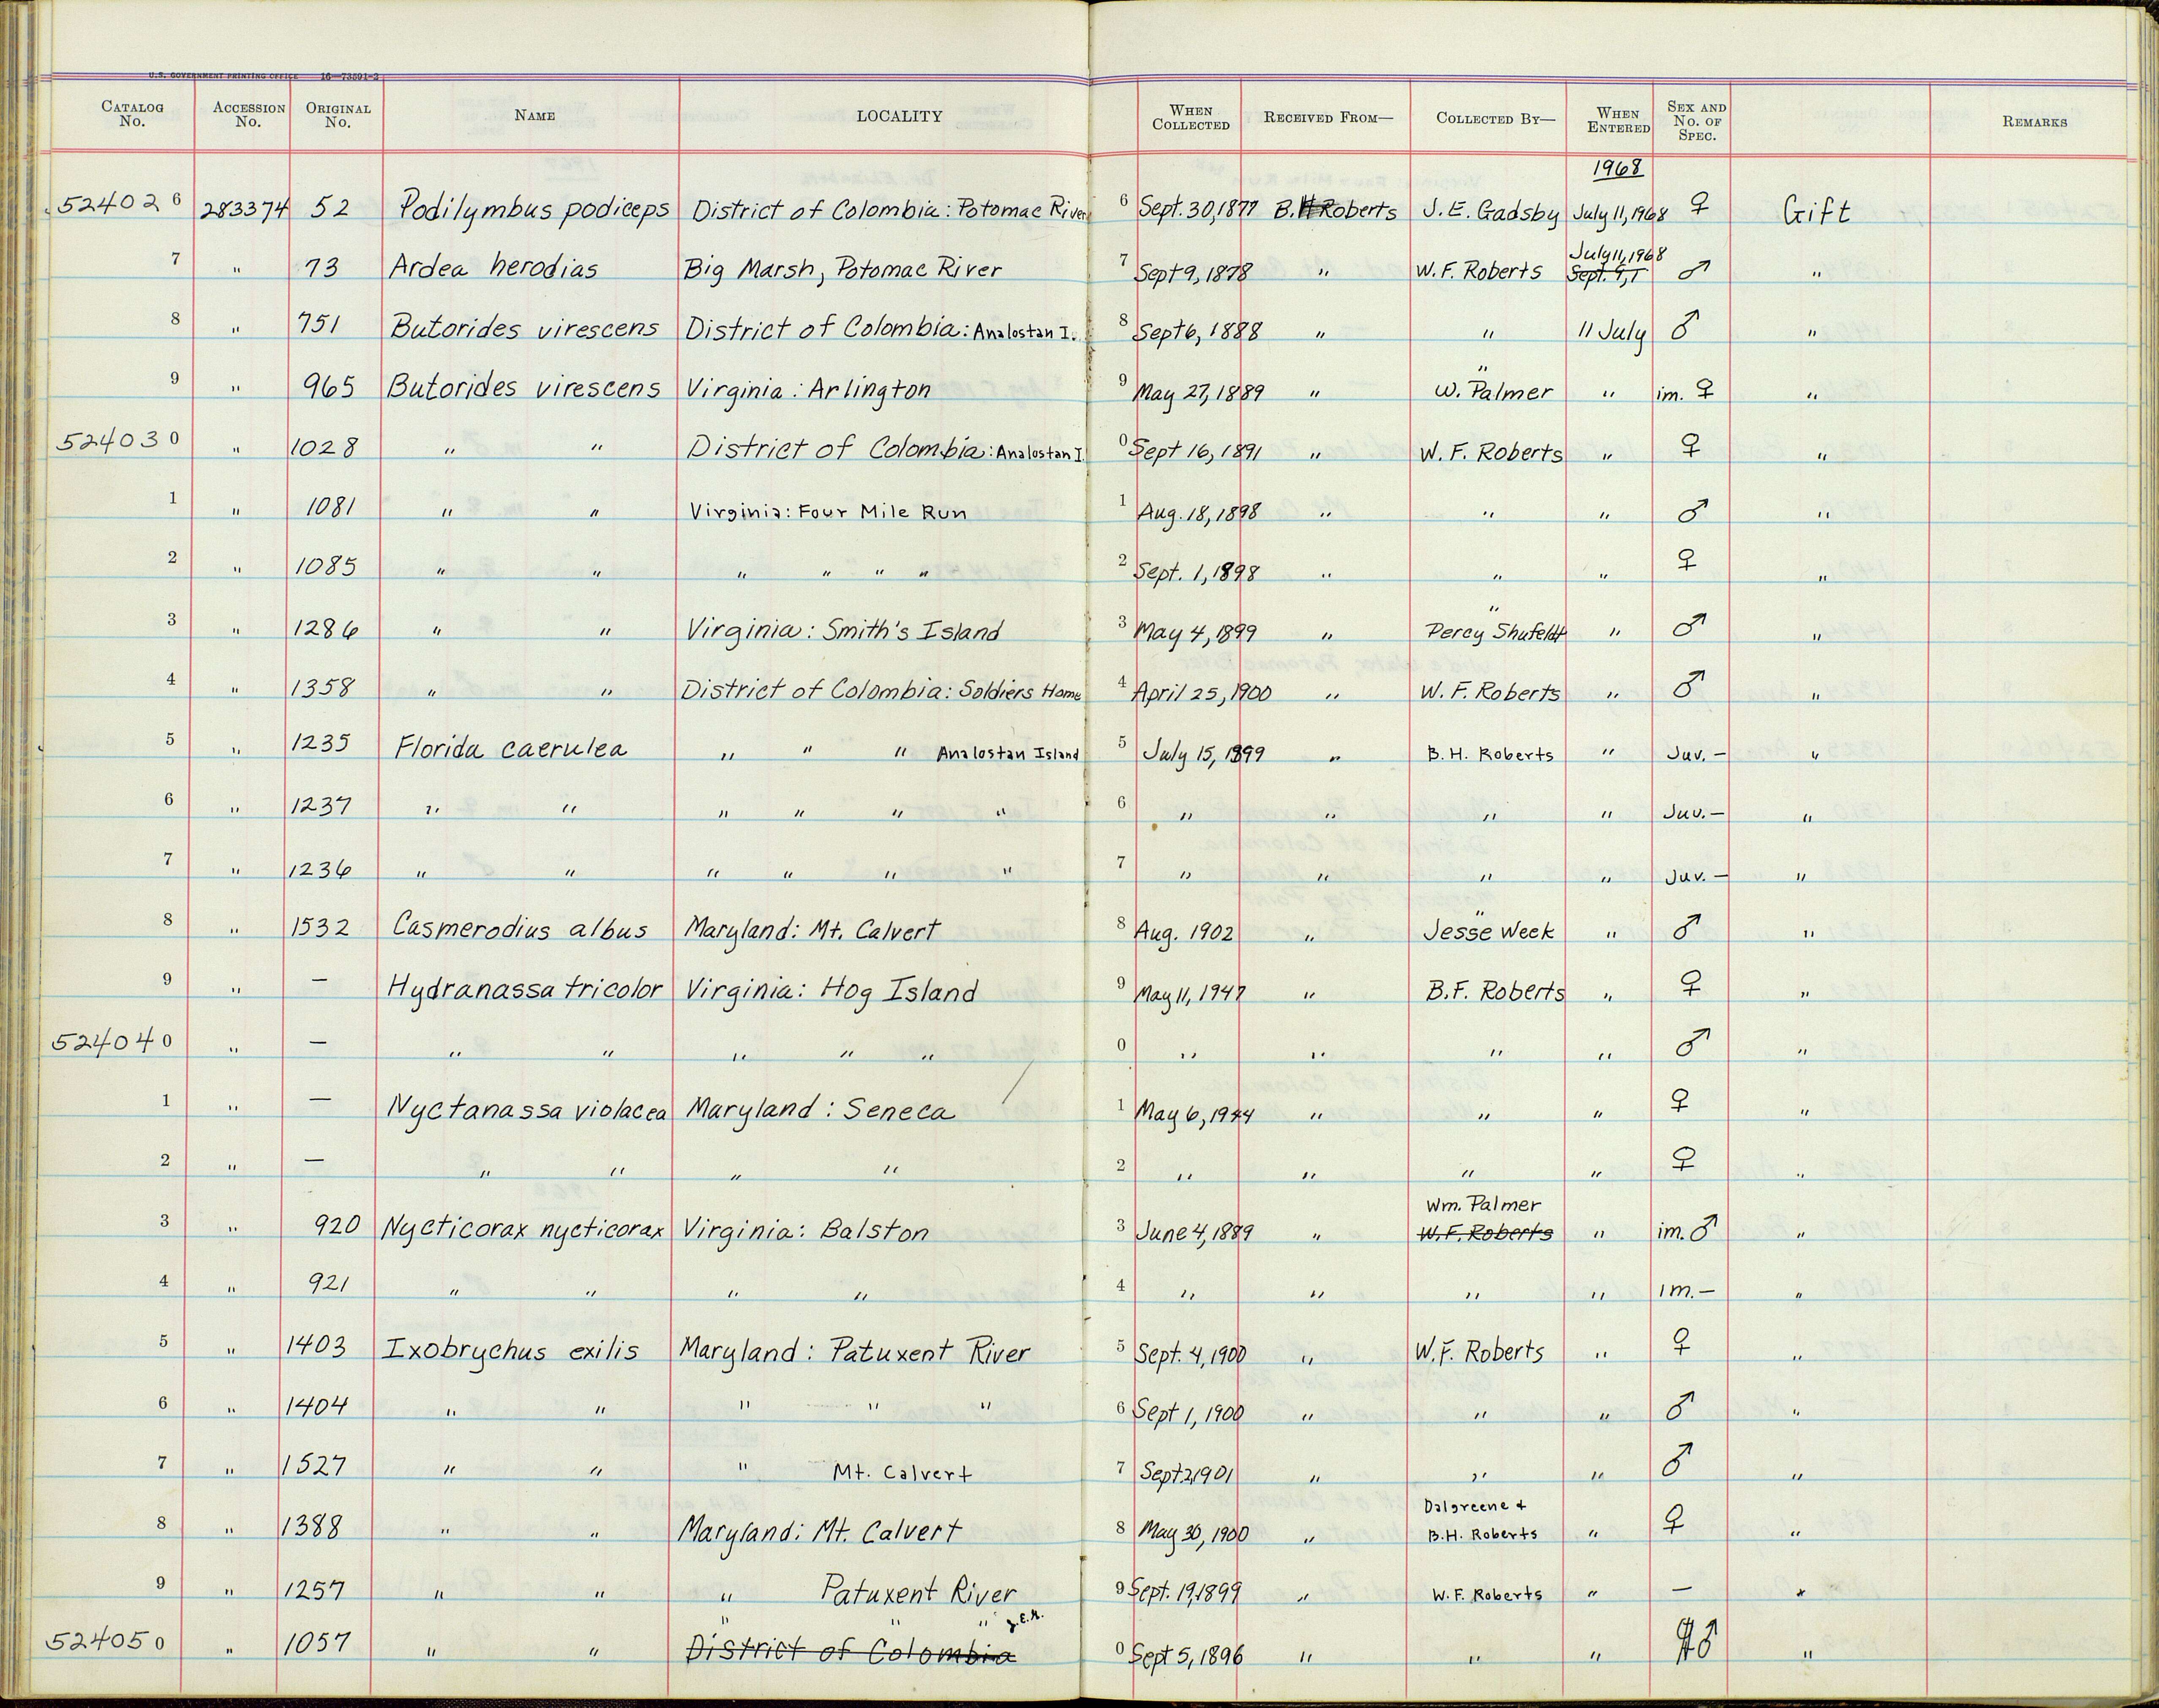 U.S. GOVERNMENT PRINTING OFFICE 16—73591-2
CATALOG No. ACCESSION No. ORIGINAL No. NAME LOCALITY WHEN COLLECTED RECEIVED FROM— COLLECTED BY— WHEN ENTERED SEX AND No. OF SPEC. REMARKS
1968
524026 283374 52 Podilymbus podiceps District of Colombia: Potomac River 6 Sept. 30, 1877 B. H Roberts J. E. Gadsby July 11, 1968 ♀ Gift
July 11, 1968
7 " 73 Ardea herodias Big Marsh, Potomac River 7 Sept 9, 1878 " W. F. Roberts Sept. 9, 1 ♂ "
8 " 751 Butorides virescens District of Colombia: Analostan I. 8 Sept 6, 1888 " " 11 July ♂ "
9 " 965 Butorides virescens Virginia: Arlington 9 May 27, 1889 " " W. Palmer " im. ♀ "
524030 " 1028 " " District of Colombia: Analostan I. 0 Sept 16, 1891 " W. F. Roberts " ♀ "
1 " 1081 " " Virginia: Four Mile Run 1 Aug. 18, 1898 " " " ♂ "
2 " 1085 " " " " " " 2 Sept. 1, 1898 " " " ♀ "
3 " 1286 " " Virginia: Smith's Island 3 May 4, 1899 " " Percy Shufeldt " ♂ "
4 " 1358 " " District of Colombia: Soldiers Home 4 April 25, 1900 " W. F. Roberts " ♂ "
5 " 1235 Florida caerulea " " " Analostan Island 5 July 15, 1899 " B. H. Roberts " Juv. — "
6 " 1237 " " " " " " 6 " " " " Juv. — "
7 " 1236 " " " " " " 7 " " " " Juv. — "
8 " 1532 Casmerodius albus Maryland: Mt. Calvert 8 Aug. 1902 " " Jesse Week " ♂ "
9 " — Hydranassa tricolor Virginia: Hog Island 9 May 11, 1947 " B. F. Roberts " ♀ "
524040 " — " " " " " 0 " " " " ♂ "
1 " — Nyctanassa violacea Maryland: Seneca 1 May 6, 1944 " " " ♀ "
2 " — " " " " 2 " " " " ♀ "
Wm. Palmer
3 " 920 Nycticorax nycticorax Virginia: Balston 3 June 4, 1889 " W. F. Roberts " im. ♂ "
4 " 921 " " " " 4 " " " " im. — "
5 " 1403 Ixobrychus exilis Maryland: Patuxent River 5 Sept. 4, 1900 " W. F. Roberts " ♀ "
6 " 1404 " " " " " 6 Sept 1, 1900 " " " ♂ "
7 " 1527 " " " Mt. Calvert 7 Sept. 2, 1901 " " " ♂ "
Dalgreene +
8 " 1388 " " Maryland: Mt. Calvert 8 May 30, 1900 " B. H. Roberts " ♀ "
9 " 1257 " " " Patuxent River 9 Sept. 19, 1899 " W. F. Roberts " — "
" " "
524050 " 1057 " " District of Colombia 0 Sept 5, 1896 " " " ♂ "